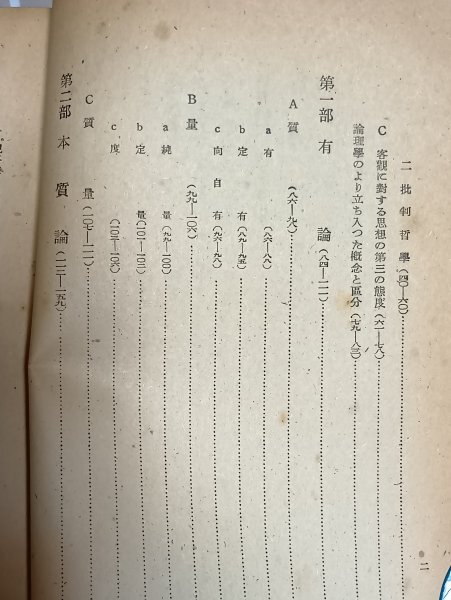 二 批判哲學(四〇—六〇)
C 客觀に對する思想の第三の態度(六一—七八)
論理學のより立ち入つた概念と區分(七九—八三)
第一部 有論(八四—一一一)
A 質(八六—九八)
a 有(八六—八八)
b 定有(八九—九五)
c 向自有(九六—九八)
B 量(九九—一〇六)
a 純量(九九—一〇〇)
b 定量(一〇一—一〇二)
c 度(一〇三—一〇六)
C 質量(一〇七—一一一)
第二部 本質論(一一二—一五九)
二